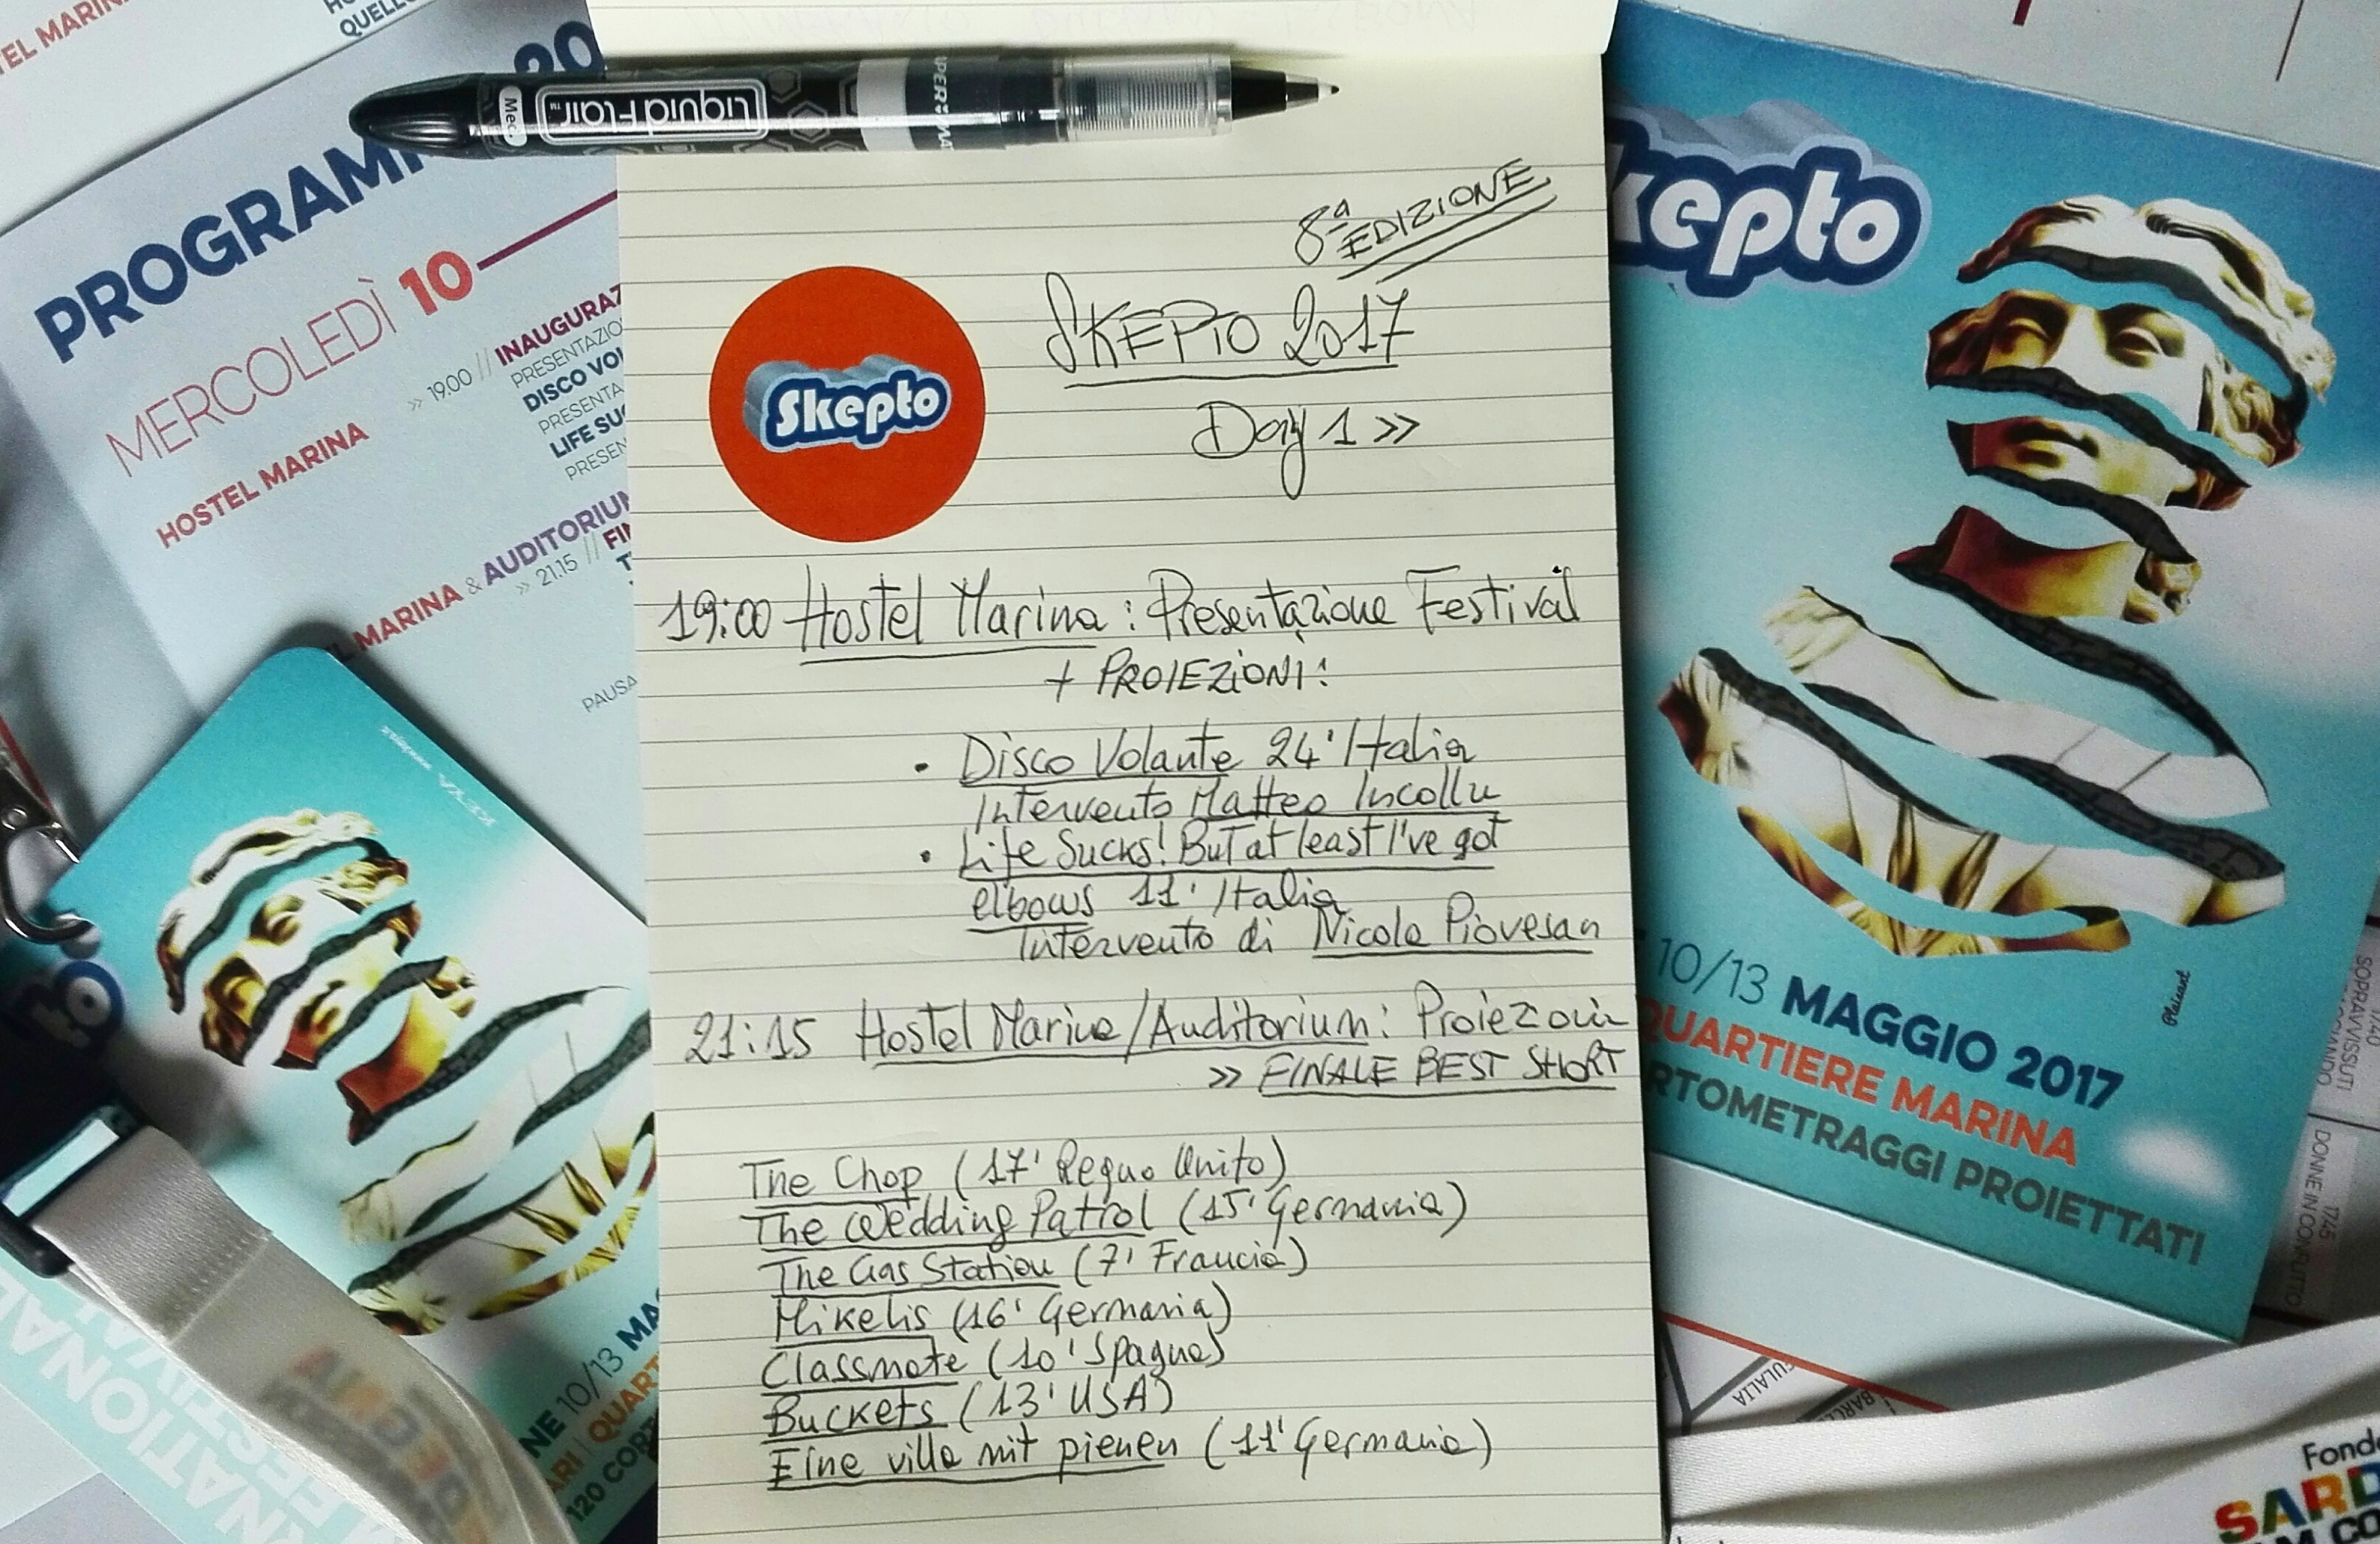 TEL MARIN
QUELLO
PROGRAM
20
MERCOLEDÌ 10
HOSTEL MARINA
>> 19.00 // INAUGURAZ
PRESENTAZIO
DISCO VO
PRESENTA
LIFE SUC
PRESEN
MARINA & AUDITORIUM
>> 21.15 // FI
PAUSA
Liquid Flair™
Med.
8ª EDIZIONE
Skepto
SKEPTO 2017
Day 1 >>
19:00 Hostel Marina: Presentazione Festival
+ PROIEZIONI:
• Disco Volante 24' Italia
Intervento Matteo Incollu
• Life Sucks! But at least I've got
elbows 11' Italia
Intervento di Nicola Piovesan
21:15 Hostel Marina/Auditorium: Proiezioni
>> FINALE BEST SHORT
The Chop (17' Regno Unito)
The Wedding Patrol (15' Germania)
The Gas Station (7' Francia)
Mikelis (16' Germania)
Classmate (10' Spagna)
Buckets (13' USA)
Eine villa mit pienen (11' Germania)
kepto
10/13 MAGGIO 2017
QUARTIERE MARINA
RTOMETRAGGI PROIETTATI
SOPRAVVISSUTI
17.45
DONNE IN CONFLITTO
ULALIA
Fond
SARD
M CO
to
NE 10/13 MA
ARI | QUART
120 CORT